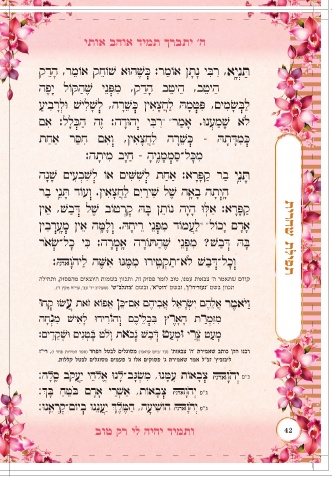 ה׳ יתברך תמיד אוהב אותי
תַּנְיָא, רַבִּי נָתָן אוֹמֵר: כְּשֶׁהוּא שׁוֹחֵק אוֹמֵר, הָדֵק
הֵיטֵב, הֵיטֵב הָדֵק, מִפְּנֵי שֶׁהַקּוֹל יָפֶה
לַבְּשָׂמִים. פִּטְּמָהּ לַחֲצָאִין כְּשֵׁרָה, לִשְׁלִישׁ וְלִרְבִיעַ
לֹא שָׁמַעְנוּ. אָמַר רַבִּי יְהוּדָה: זֶה הַכְּלָל: אִם
כְּמִדָּתָהּ - כְּשֵׁרָה לַחֲצָאִין. וְאִם חִסַּר אַחַת
מִכָּל־סַמְמָנֶיהָ - חַיָּב מִיתָה:
תָּנֵי בַר קַפָּרָא: אַחַת לְשִׁשִּׁים אוֹ לְשִׁבְעִים שָׁנָה
הָיְתָה בָאָה שֶׁל שִׁירַיִם לַחֲצָאִין. וְעוֹד תָּנֵי בַר
קַפָּרָא: אִלּוּ הָיָה נוֹתֵן בָּהּ קָרְטוֹב שֶׁל דְּבַשׁ, אֵין
אָדָם יָכוֹל לַעֲמוֹד מִפְּנֵי רֵיחָהּ. וְלָמָּה אֵין מְעָרְבִין
בָּהּ דְּבַשׁ? מִפְּנֵי שֶׁהַתּוֹרָה אָמְרָה: כִּי כָל־שְׂאֹר
וְכָל־דְּבַשׁ לֹא־תַקְטִירוּ מִמֶּנּוּ אִשֶּׁה לַיהֹוָה:
וַיֹּאמֶר אֲלֵהֶם יִשְׂרָאֵל אֲבִיהֶם אִם־כֵּן אֵפוֹא זֹאת עֲשׂוּ קְחוּ
מִזִּמְרַת הָאָרֶץ בִּכְלֵיכֶם וְהוֹרִידוּ לָאִישׁ מִנְחָה
מְעַט צֳרִי וּמְעַט דְּבַשׁ נְכֹאת וָלֹט בָּטְנִים וּשְׁקֵדִים:
ג״פ יְהֹוָה צְבָאוֹת עִמָּנוּ, מִשְׂגָּב־לָנוּ אֱלֹהֵי יַעֲקֹב סֶלָה:
ג״פ יְהֹוָה צְבָאוֹת, אַשְׁרֵי אָדָם בֹּטֵחַ בָּךְ:
ג״פ יְהֹוָה הוֹשִׁיעָה, הַמֶּלֶךְ יַעֲנֵנוּ בְיוֹם־קָרְאֵנוּ:
ותמיד יהיה לי רק טוב
תפילת שחרית
42